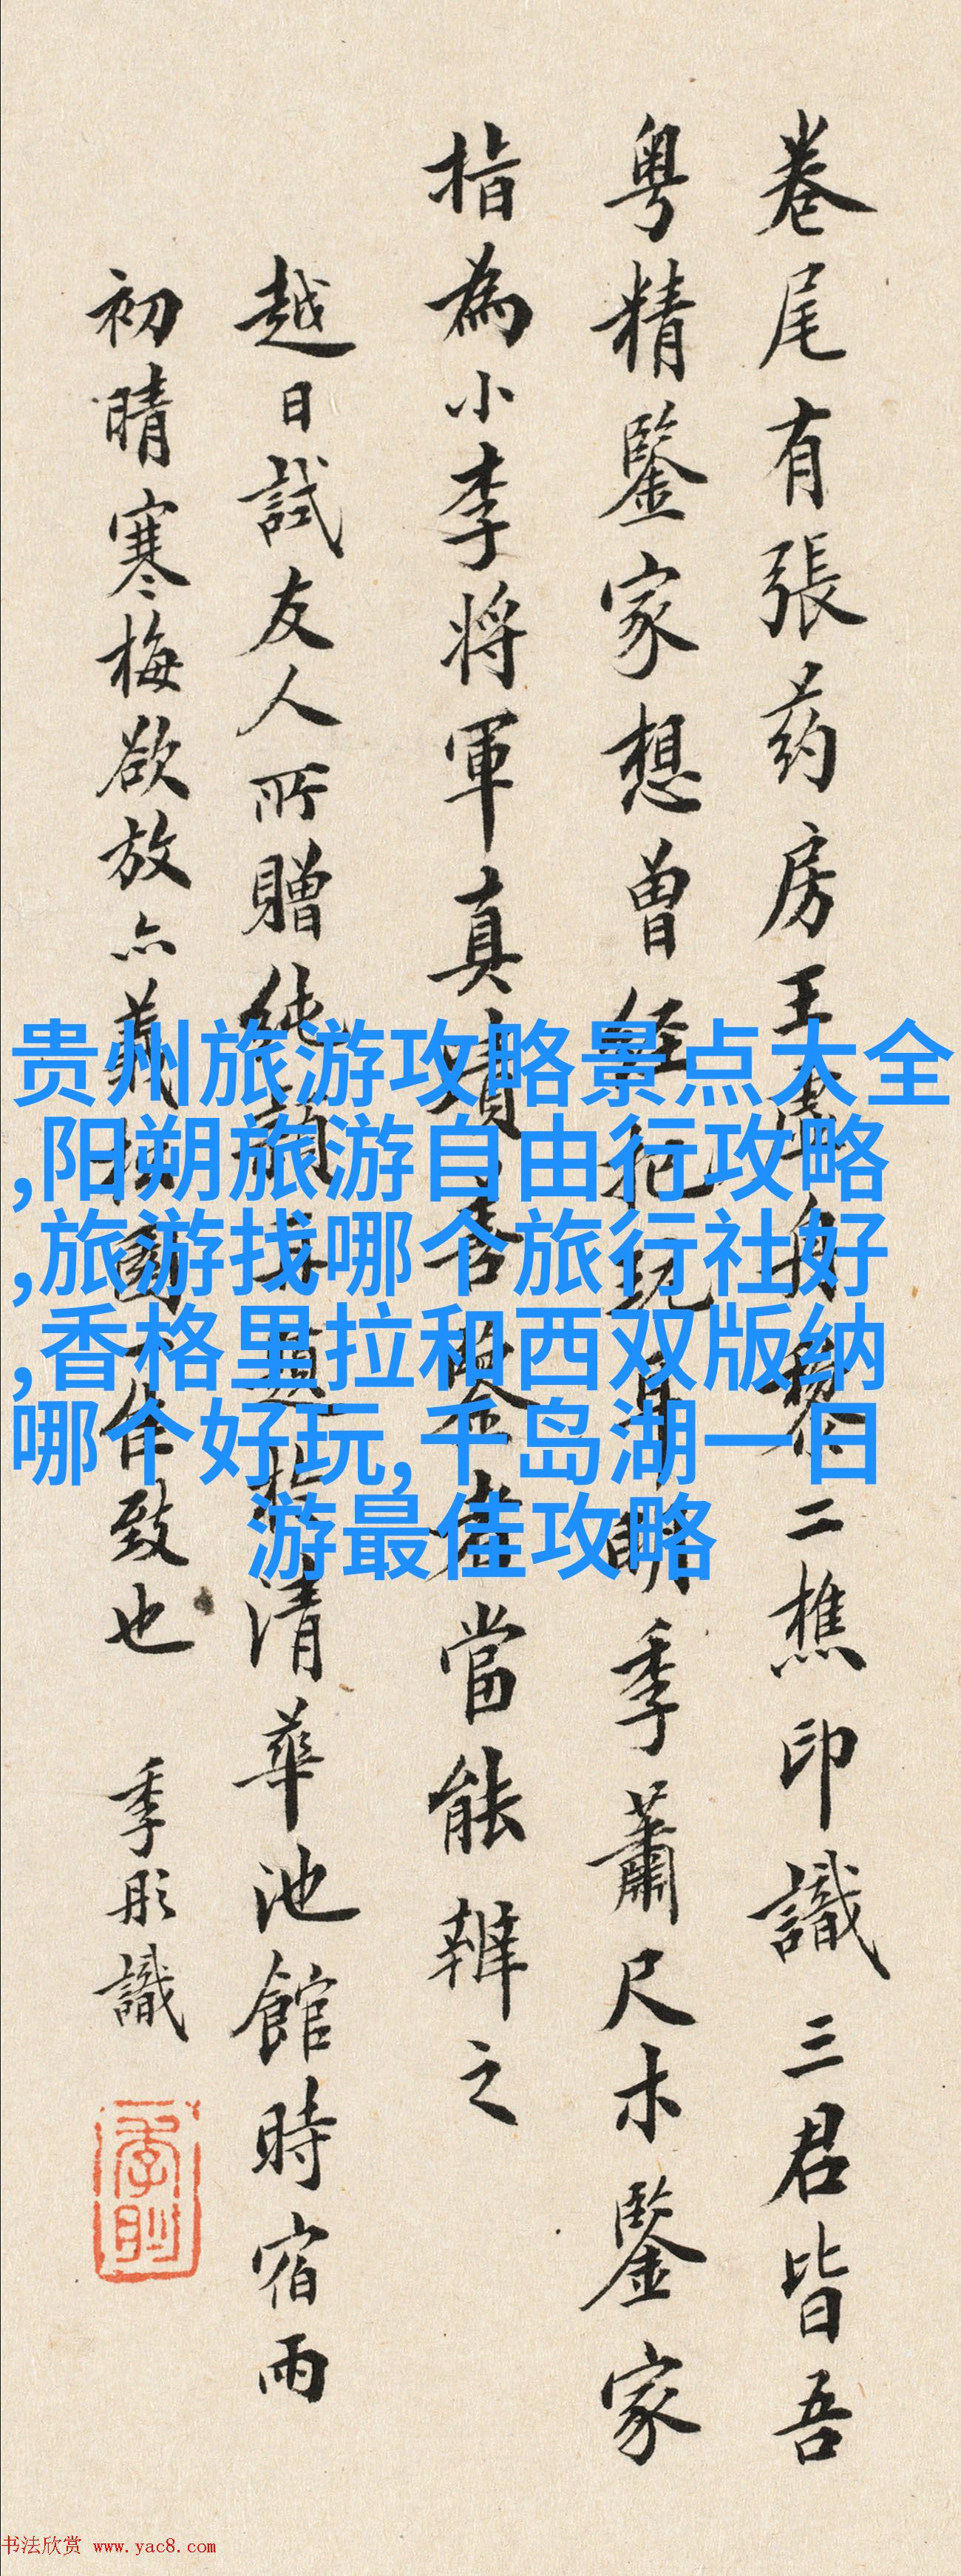 卷尾有張药房王舟黎二樵印識三君皆吾
粤精鑒家想曾經把玩耳明季蕭尺木鑒家
指為小李將軍真蹟善鑒者當能辨之
越日試友人所贈純清華池館時宿雨
初晴寒梅欲放亦圖一佳致也 季彤識
贵州旅游攻略景点大全
,阳朔旅游自由行攻略
,旅游找哪个旅行社好
,香格里拉和西双版纳
哪个好玩,千岛湖一日
游最佳攻略
书法欣赏 www.yac8.com